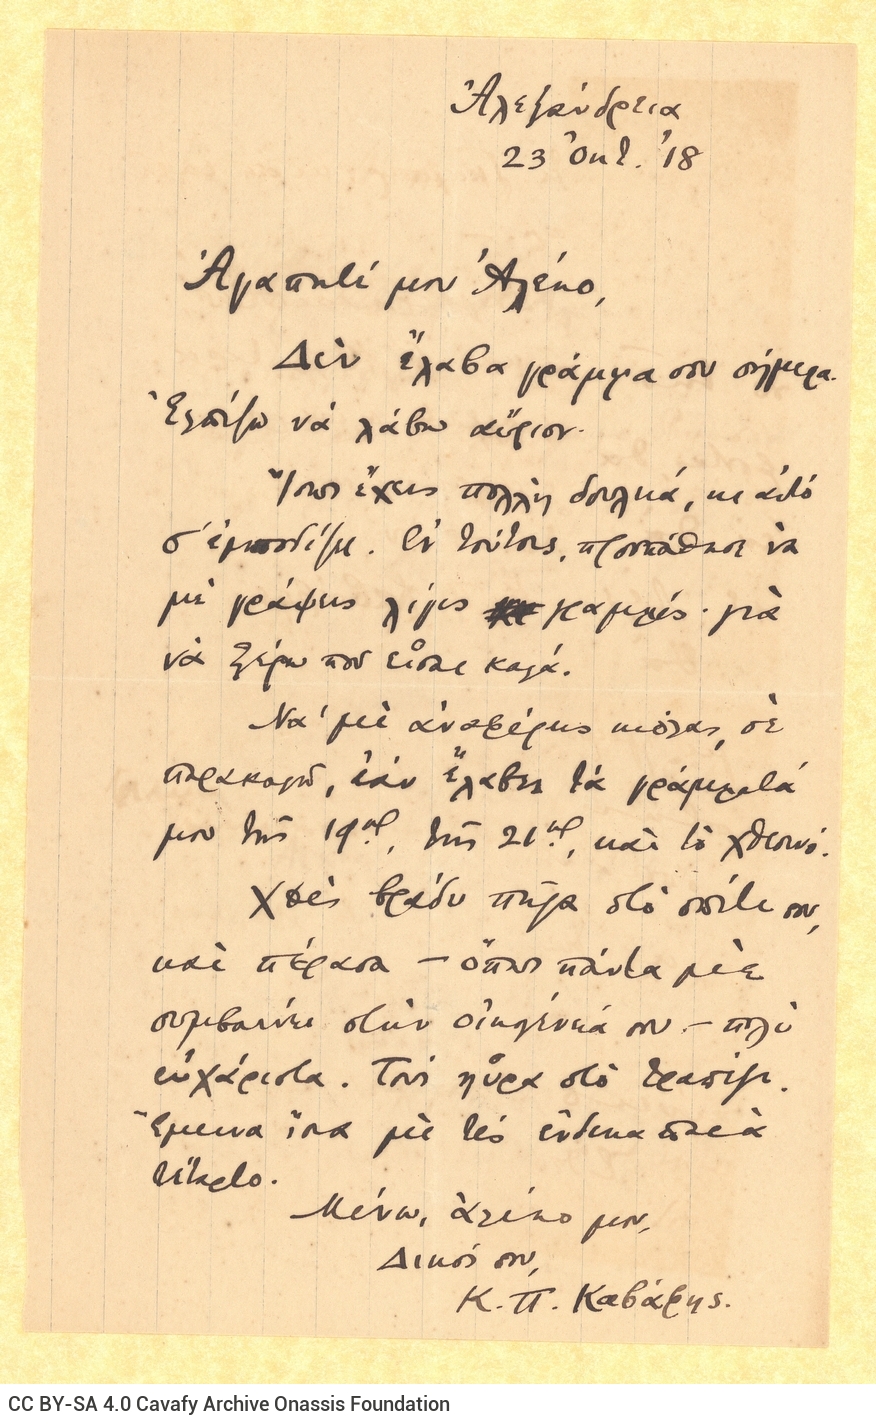 Ἀλεξάνδρεια
23 Ὀκτ. '18
Ἀγαπητέ μου Ἀλέκο,
Δὲν ἔλαβα γράμμα σου σήμερα.
Ἐλπίζω νὰ λάβω αὔριον.
Ἴσως ἔχεις πολλὴ δουλειά, κι αὐτὸ
σ' ἐμποδίζει. Ἐν τούτοις, προσπάθησε νὰ
μὲ γράψεις λίγες γραμμές· γιὰ
νὰ ξέρω που εἶσαι καλά.
Νὰ μὲ ἀναφέρῃς κιόλας, σὲ
παρακαλῶ, ἐὰν ἔλαβες τὰ γράμματά
μου τῆς 19ης, τῆς 21ης, καὶ τὸ χθεσινό.
Χθὲς βράδυ πῆγα στὸ σπίτι σου,
καὶ πέρασα – ὅπως πάντα μὲ
συμβαίνει στὴν οἰκογένειά σου – πολὺ
εὐχάριστα. Τοὺς ηὗρα στὸ τραπέζι.
Ἔμεινα ἴσα μὲ τὲς ἕνδεκα παρὰ
τέταρτο.
Μένω, Ἀλέκο μου,
Δικός σου,
Κ. Π. Καβάφης.
CC BY-SA 4.0 Cavafy Archive Onassis Foundation